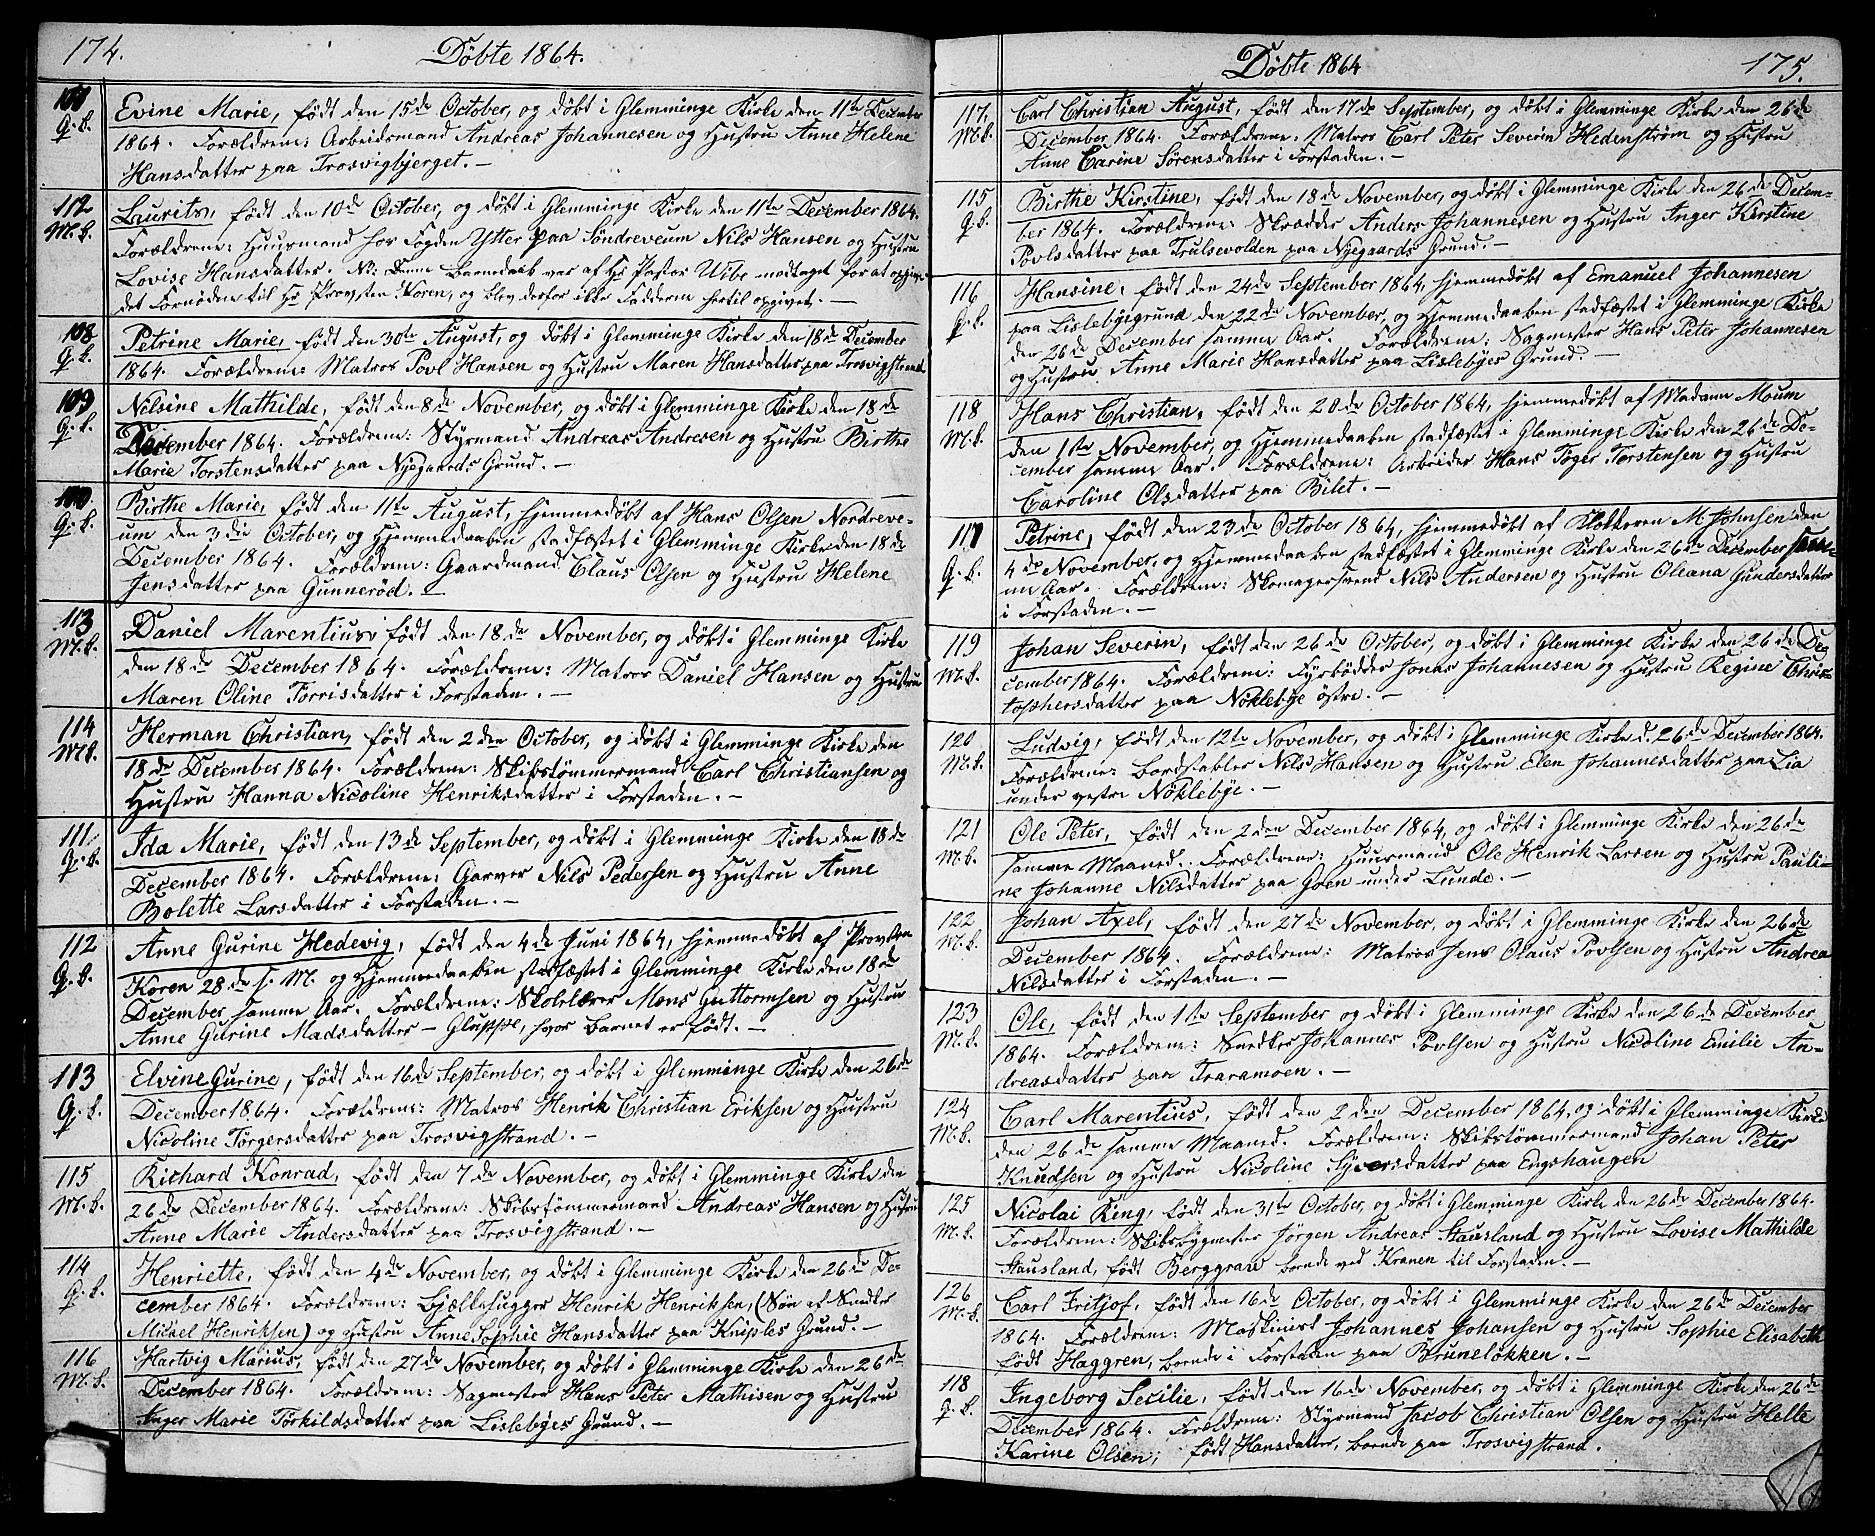 174.
Døbte 1864.
Q. k.
Evine Marie, født den 15de October, og døbt i Glemminge Kirke den 11te Decembr
1864. Forældrene: Arbeidsmand Andreas Johannesen og Hustru Anne Helene
Hansdatter paa Trosvigbjerget. —
112
M. k.
Laurits, født den 10de October, og døbt i Glemminge Kirke den 11te December 1864.
Forældrene: Huusmand hos Fogden Ytter paa Søndreveum Nils Hansen og Hustru
Lovise Hansdatter. Nb: Denne Barnedaab var af Hr Pastor Wibe modtaget for at opgive
det Fornødne til Hr Provsten Koren, og blev derfor ikke Fadderne hertil opgivet. —
108
Q. k.
Petrine Marie, født den 30te August, og døbt i Glemminge Kirke den 18de December
1864. Forældrene: Matros Povl Hansen og Hustru Maren Hansdatter paa Trosvigstrand
109
Q. k.
Nilsine Mathilde, født den 8de November, og døbt i Glemminge Kirke den 18de
December 1864. Forældrene: Styrmand Andreas Andresen og Hustru Birthe
Marie Torstensdatter paa Nyegaards Grund. —
Q. k.
Birthe Marie, født den 11te August, hjemmedøbt af Hans Olsen Nordreve-
um den 3die October, og Hjemmedaaben stadfæstet i Glemminge Kirke den 18de
December 1864. Forældrene: Gaardmand Claus Olsen og Hustru Helene
Jensdatter paa Gunnerød. —
113
M. k.
Daniel Marentius, født den 18de November, og døbt i Glemminge Kirke
den 18de December 1864. Forældrene: Matros Daniel Hansen og Hustru
Maren Oline Torrisdatter i Forstaden. —
114
M. k.
Herman Christian, født den 2den October, og døbt i Glemminge Kirke den
18de December 1864. Forældrene: Skibstømmermand Carl Christiansen og
Hustru Hanna Nicoline Henriksdatter i Forstaden. —
111
Q. k.
Ida Marie, født den 13de September, og døbt i Glemminge Kirke den 18de
December 1864. Forældrene: Garver Nils Pedersen og Hustru Anne
Bolette Larsdatter i Forstaden. —
112
Q. k.
Anne Gurine Hedevig, født den 4de Juni 1864, hjemmedøbt af Provsten
Koren 28de s. M. og Hjemmedaaben stadfæstet i Glemminge Kirke den 18de
December samme Aar. Forældrene: Skolelærer Mons Guttormsen og Hustru
Anne Gurine Madsdatter — Gluppe, hvor Barnet er født. —
113
Q. k.
Elvine Gurine, født den 16de September, og døbt i Glemminge Kirke den 26de
December 1864. Forældrene: Matros Henrik Christian Eriksen og Hustru
Nicoline Törgersdatter paa Trosvigstrand. —
115
M. k.
Richard Konrad, født den 7de November, og døbt i Glemminge Kirke den
26de December 1864. Forældrene: Skibstømmermand Andreas Hansen og Hustru
Anne Marie Andersdatter paa Trosvigstrand. —
114
Q. k.
Henriette, født den 4de November, og døbt i Glemminge Kirke den 26de De-
cember 1864. Forældrene: Bjælkehugger Henrik Henriksen, (Søn af Smeden
Michael Henriksen) og Hustru Anne Sophie Hansdatter paa Kniples Grund. —
116
M. k.
Hartvig Marius, født den 27de November, og døbt i Glemminge Kirke den 26de
December 1864. Forældrene: Sagmester Hans Peter Mathisen og Hustru
Inger Marie Törkildsdatter paa Lislebyes Grund. —
Døbte 1864
175.
117.
M. k.
Carl Christian August, født den 17de September, og døbt i Glemminge Kirke den 26de
December 1864. Forældrene: Matros Carl Peter Severin Hedenstrøm og Hustru
Anne Carine Sörensdatter i Forstaden. —
115
Q. k.
Birthe Kirstine, født den 18de November, og døbt i Glemminge Kirke den 26de Decem-
ber 1864. Forældrene: Skrædder Anders Johannesen og Hustru Inger Kirstine
Povlsdatter paa Trulsevolden paa Nyegaards Grund. —
116
Q. k.
Hansine, født den 24de September 1864, hjemmedøbt af Emanuel Johannesen
paa Lislebyegrund den 22de November, og Hjemmedaaben stadfæstet i Glemminge Kirke
den 26de December samme Aar. Forældrene: Sagmester Hans Peter Johannesen
og Hustru Anne Marie Hansdatter paa Lislebyes Grund. —
118
M. k.
Hans Christian, født den 20de October 1864, hjemmedøbt af Madame Moum
den 1ste November, og Hjemmedaaben stadfæstet i Glemminge Kirke den 26de De-
cember samme Aar. Forældrene: Arbeider Hans Töger Torstensen og Hustru
Caroline Olsdatter paa Bilet. —
117
Q. k.
Petrine, født den 23de October 1864, hjemmedøbt af Klokkeren M. Johnsen den
4de November, og Hjemmedaaben stadfæstet i Glemminge Kirke den 26de December sam-
me Aar. Forældrene: Skomagersvend Nils Andersen og Hustru Oleana Gundersdatter
i Forstaden. —
119
M. k.
Johan Severin, født den 26de October, og døbt i Glemminge Kirke den 26de De-
cember 1864. Forældrene: Fyrbøder Jonas Johannesen og Hustru Regine Chris-
tophersdatter paa Nöklebye östre. —
120
M. k.
Ludvig, født den 12te November, og døbt i Glemminge Kirke d. 26de December 1864.
Forældrene: Bordstabler Nils Hansen og Hustru Elen Johannesdatter paa Lia
under vestre Nöklebye. —
121
M. k.
Ole Peter, født den 2den December 1864, og døbt i Glemminge Kirke den 26de
samme Maaned. Forældrene: Huusmand Ole Henrik Larsen og Hustru Pauli-
ne Johanne Nilsdatter paa Oren under Lunde. —
122
M. k.
Johan Axel, født den 27de November, og døbt i Glemminge Kirke den 26de
December 1864. Forældrene: Matros Jens Claus Povlsen og Hustru Andrea
Nilsdatter i Forstaden. —
123
M. k.
Ole, født den 1ste September og døbt i Glemminge Kirke den 26de December
1864. Forældrene: Snedker Johannes Povlsen og Hustru Nicoline Emilie An-
dreasdatter paa Traramoen. —
124
M. k.
Carl Marentius, født den 2den December 1864, og døbt i Glemminge Kirke
den 26de samme Maaned. Forældrene: Skibstømmermand Johan Peter
Knudsen og Hustru Nicoline Syversdatter paa Engshaugen
125
M. k.
Nicolai Ring, født den 31te October, og døbt i Glemminge Kirke den 26de December 1864.
Forældrene: Skibsbygmester Jörgen Andreas Stausland og Hustru Lovise Mathilde
Stausland, født Berggraw boende ved Kranen til Forstaden. —
126
M. k.
Carl Fritjof, født den 16de October, og døbt i Glemminge Kirke den 26de December
1864. Forældrene: Maskinist Johannes Johansen og Hustru Sophie Elisabeth
født Haggren, boende i Forstaden paa Bruneløkken. —
118
Q. k.
Ingeborg Secilie, født den 16de November, og døbt i Glemminge Kirke den 26de
December 1864. Forældrene: Styrmand Jacob Christian Olsen og Hustru Helle
Karine Olsen, født Hansdatter, boende paa Trosvigstrand.